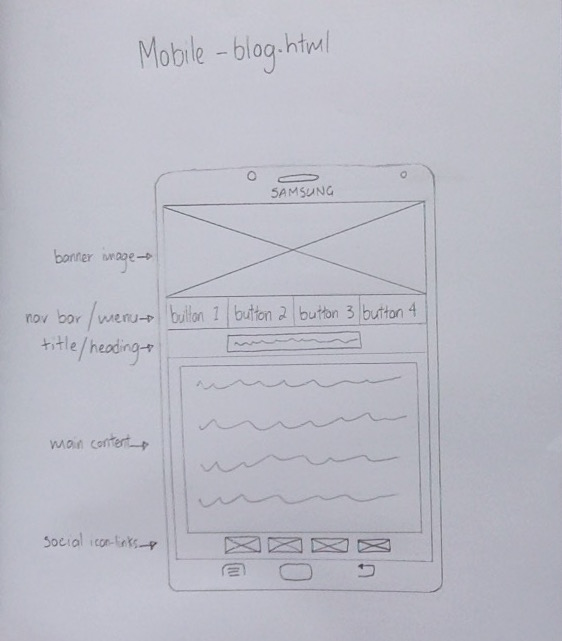 Mobile - blog.html
SAMSUNG
banner image
nav bar/menu
button 1 button 2 button 3 button 4
title/heading
main content
social icon-links